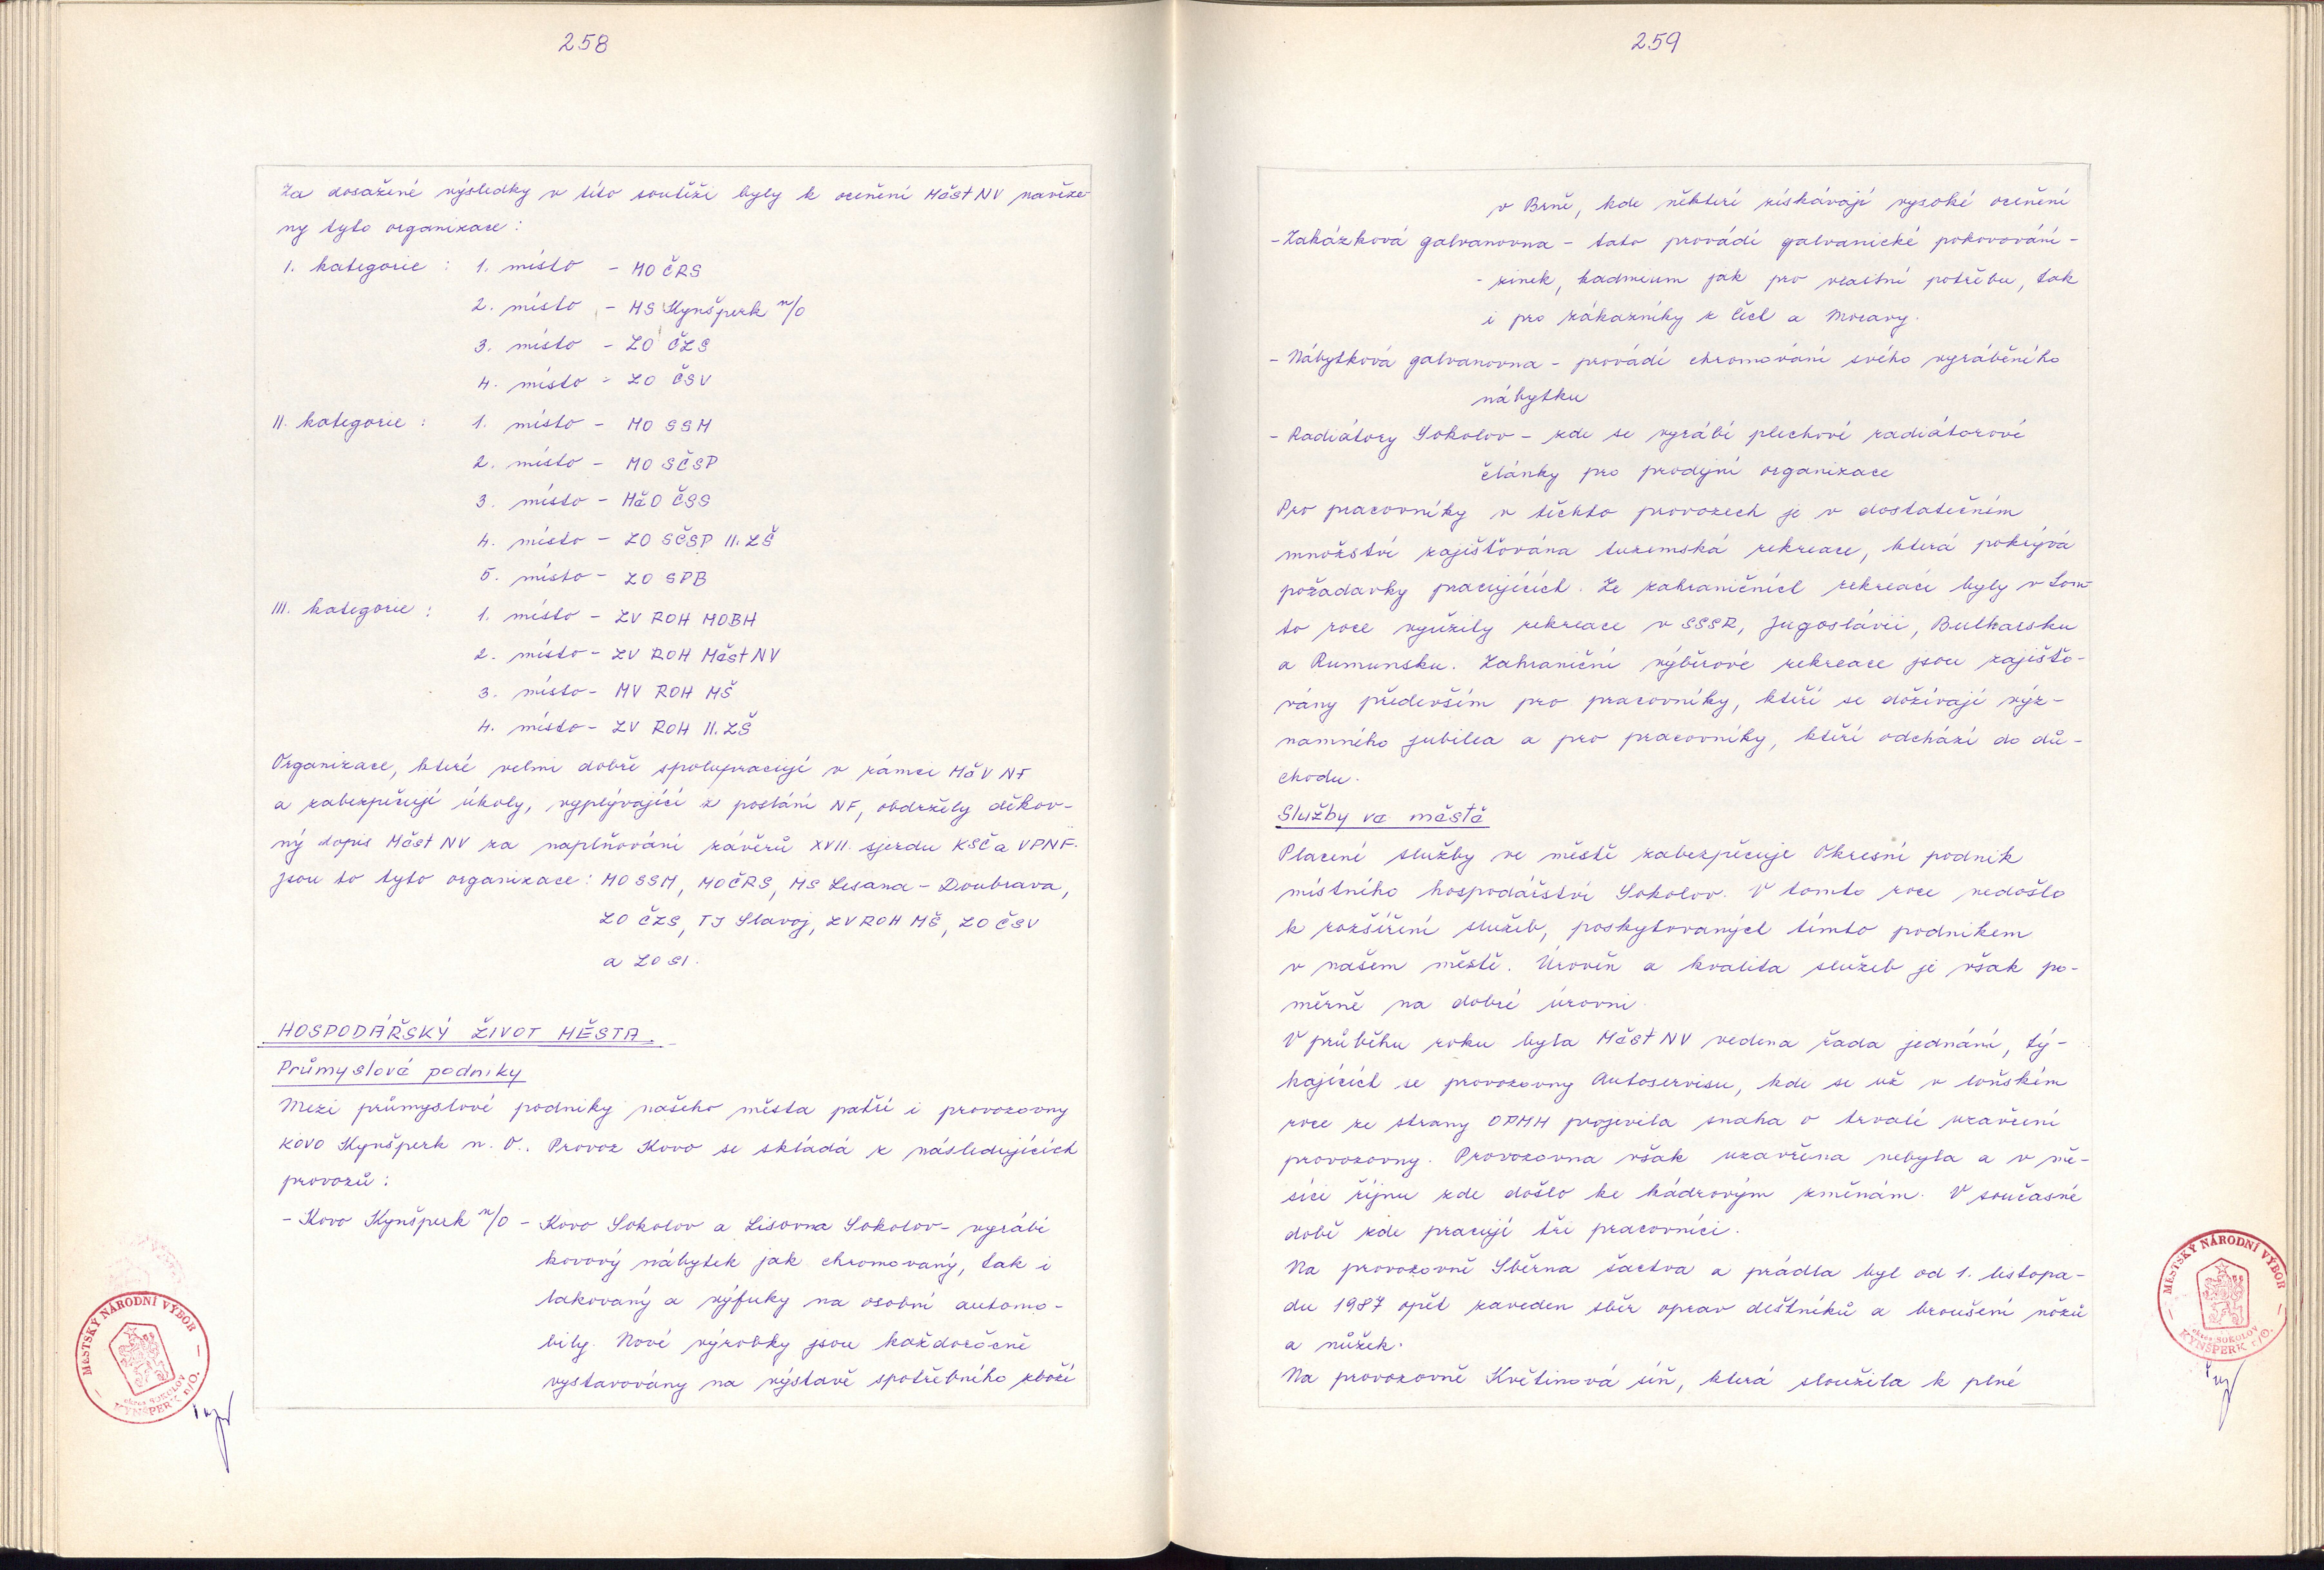 258
Za dosažené výsledky v této soutěži byly k ocenění MěstNV navrže-
ny tyto organizace:
I. kategorie : 1. místo - MO ČRS
2. místo - MS Kynšperk n/O
3. místo - ZO ČZS
4. místo - ZO ČSV
II. kategorie : 1. místo - MO SSM
2. místo - MO SČSP
3. místo - MěO ČSS
4. místo - ZO SČSP II. ZŠ
5. místo - ZO SPB
III. kategorie : 1. místo - ZV ROH MOBH
2. místo - ZV ROH MěstNV
3. místo - MV ROH MŠ
4. místo - ZV ROH II. ZŠ
Organizace, které velmi dobře spolupracují v rámci MěV NF
a zabezpečují úkoly, vyplývající z poslání NF, obdržely děkov-
ný dopis MěstNV za naplňování závěrů XVII. sjezdu KSČ a VPNF.
Jsou to tyto organizace: MO SSM, MO ČRS, MS Lesana - Doubrava,
ZO ČZS, TJ Slavoj, ZV ROH MŠ, ZO ČSV
a ZO SI.
HOSPODÁŘSKÝ ŽIVOT MĚSTA.
Průmyslové podniky
Mezi průmyslové podniky našeho města patří i provozovny
KOVO Kynšperk n. O.. Provoz Kovo se skládá z následujících
provozů:
- Kovo Kynšperk n/O - Kovo Sokolov a Lisovna Sokolov - vyrábí
kovový nábytek jak chromovaný, tak i
lakovaný a výfuky na osobní automo-
bily. Nové výrobky jsou každoročně
vystavovány na výstavě spotřebního zboží
MĚSTSKÝ NÁRODNÍ VÝBOR
okres SOKOLOV
KYNŠPERK n/O.
259
v Brně, kde některé získávají vysoké ocenění
- Zakázková galvanovna - tato provádí galvanické pokovování -
- zinek, kadmium jak pro vlastní potřebu, tak
i pro zákazníky z Čech a Moravy.
- Nábytková galvanovna - provádí chromování svého vyráběného
nábytku
- Radiátory Sokolov - zde se vyrábí plechové radiátorové
články pro prodejní organizace
Pro pracovníky v těchto provozech je v dostatečném
množství zajišťována tuzemská rekreace, která pokrývá
požadavky pracujících. Ze zahraničních rekreací byly v tom-
to roce využity rekreace v SSSR, Jugoslávii, Bulharsku
a Rumunsku. Zahraniční výběrové rekreace jsou zajišťo-
vány především pro pracovníky, kteří se dožívají výz-
namného jubilea a pro pracovníky, kteří odchází do dů-
chodu.
Služby ve městě
Placené služby ve městě zabezpečuje Okresní podnik
místního hospodářství Sokolov. V tomto roce nedošlo
k rozšíření služeb, poskytovaných tímto podnikem
v našem městě. Úroveň a kvalita služeb je však po-
měrně na dobré úrovni.
V průběhu roku byla MěstNV vedena řada jednání, tý-
kajících se provozovny Autoservisu, kde se už v loňském
roce ze strany OPMH projevila snaha o trvalé uzavření
provozovny. Provozovna však uzavřena nebyla a v mě-
síci říjnu zde došlo ke kádrovým změnám. V současné
době zde pracují tři pracovníci.
Na provozovně Sběrna šatstva a prádla byl od 1. listopa-
du 1987 opět zaveden sběr oprav deštníků a broušení nožů
a nůžek.
Na provozovně Květinová síň, která sloužila k plné
MĚSTSKÝ NÁRODNÍ VÝBOR
okres SOKOLOV
KYNŠPERK n/O.